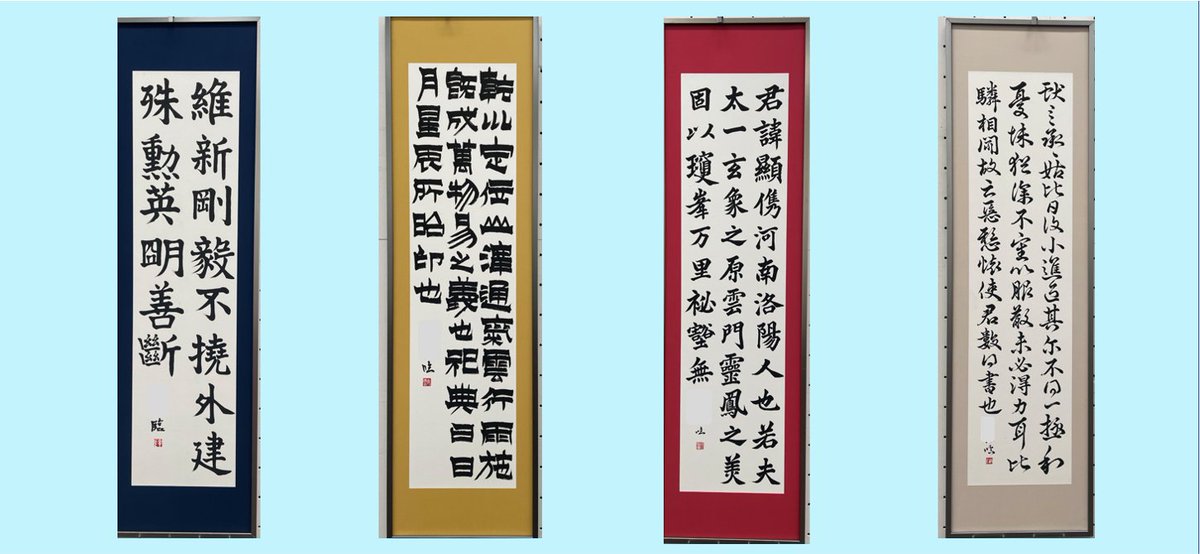 維新剛毅不撓外建
殊勳英明善斷
臨
乾川定位山澤通氣雲行雨施
既成萬物易之義也祀典曰日
月星辰所昭卬也
臨
君諱顯儁河南洛陽人也若夫
太一玄象之原雲門靈鳳之美
固以瓊峯万里祕壑無
献之承姑比日復小進退其尓不得一極和
憂悚猶深不審以服散未必得力耳比
驎相聞故云惡懸懷使君數得書也